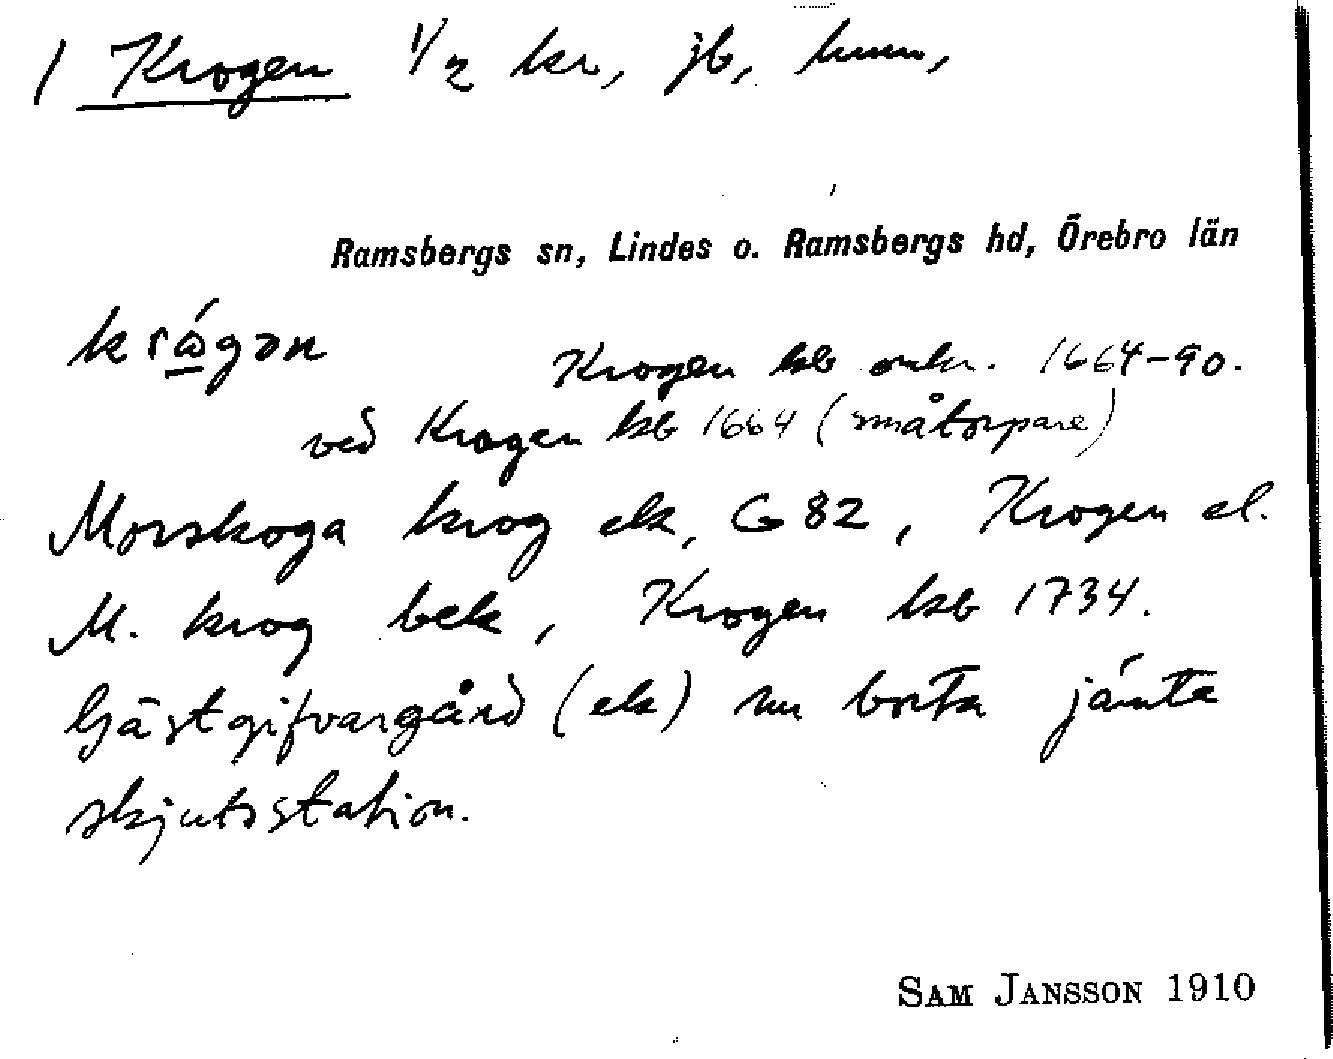 1 Krogen 1/2 kr, jb, hmn,
Ramsbergs sn, Lindes o. Ramsbergs hd, Örebro län
Krogen kb 1664-90.
ved Krogen kb 1664 (småtorpare)
Morskoga krog ek, G 82, Krogen el.
M. krog bek, Krogen kb 1734.
Gästgifvargård (ek) nu borta jämte
skjutsstation.
SAM JANSSON 1910